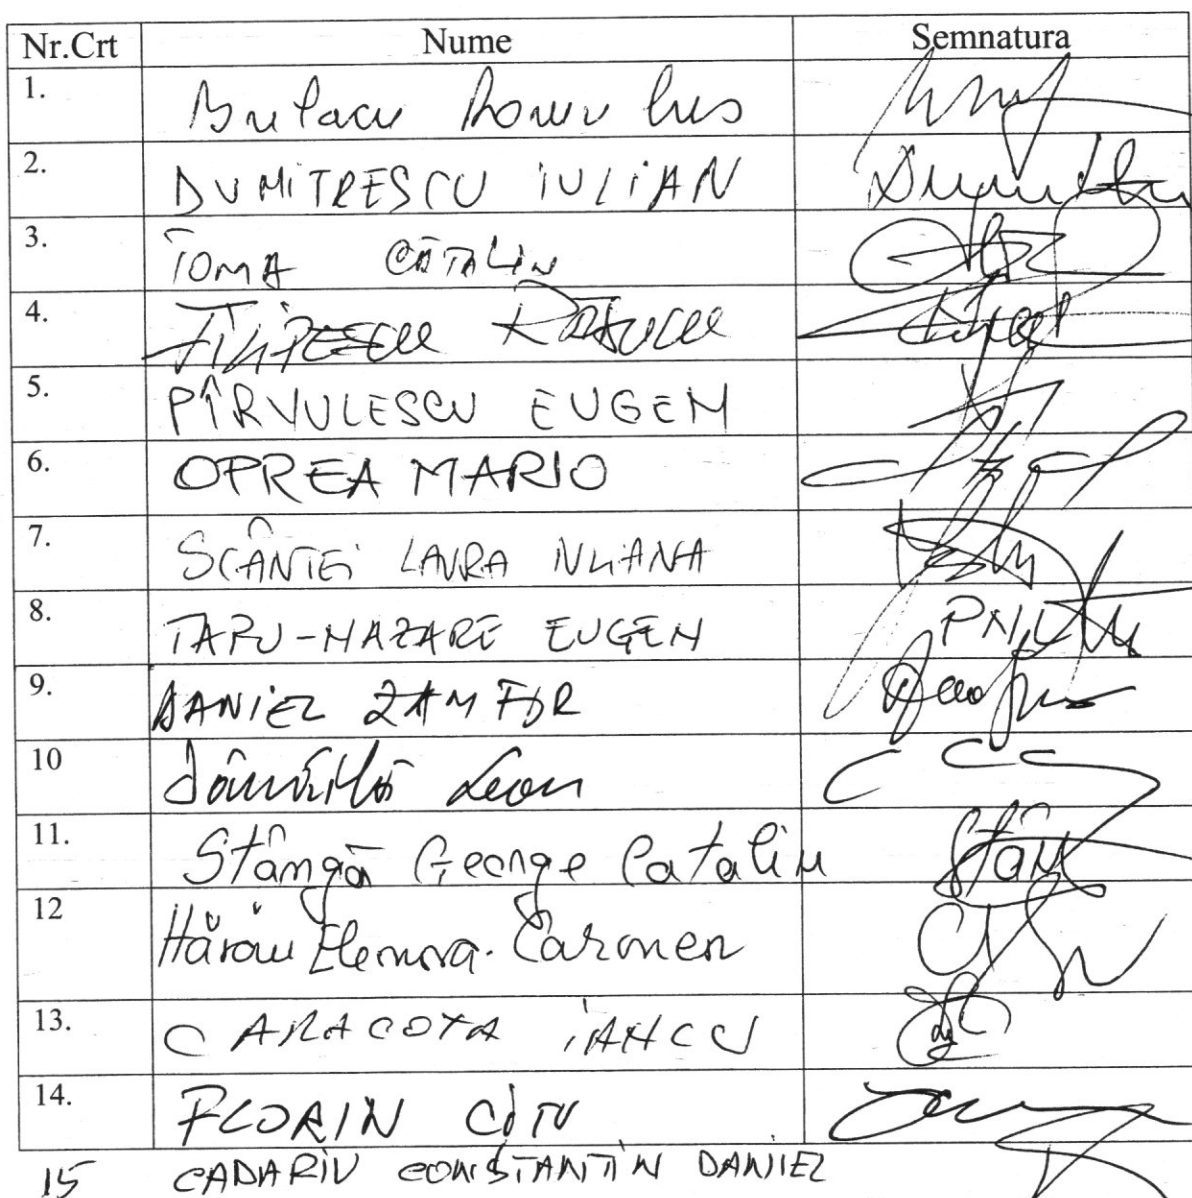 Nr.Crt Nume Semnatura
1. Bulacu Romulus
2. DUMITRESCU IULIAN Dumitru
3. TOMA CĂTĂLIN
4. FILIPESCU RĂDUCU
5. PÎRVULESCU EUGEN
6. OPREA MARIO
7. SCÂNTEI LAURA IULIANA
8. TAPU-NAZARE EUGEN PNL
9. DANIEL ZAMFIR
10 Dănăilă Leon
11. Stângă George Catalin Stân
12 Hărău Eleonora-Carmen
13. CARACOTA IANCU
14. FLORIN CÎȚU
15 CADARIU CONSTANTIN DANIEL